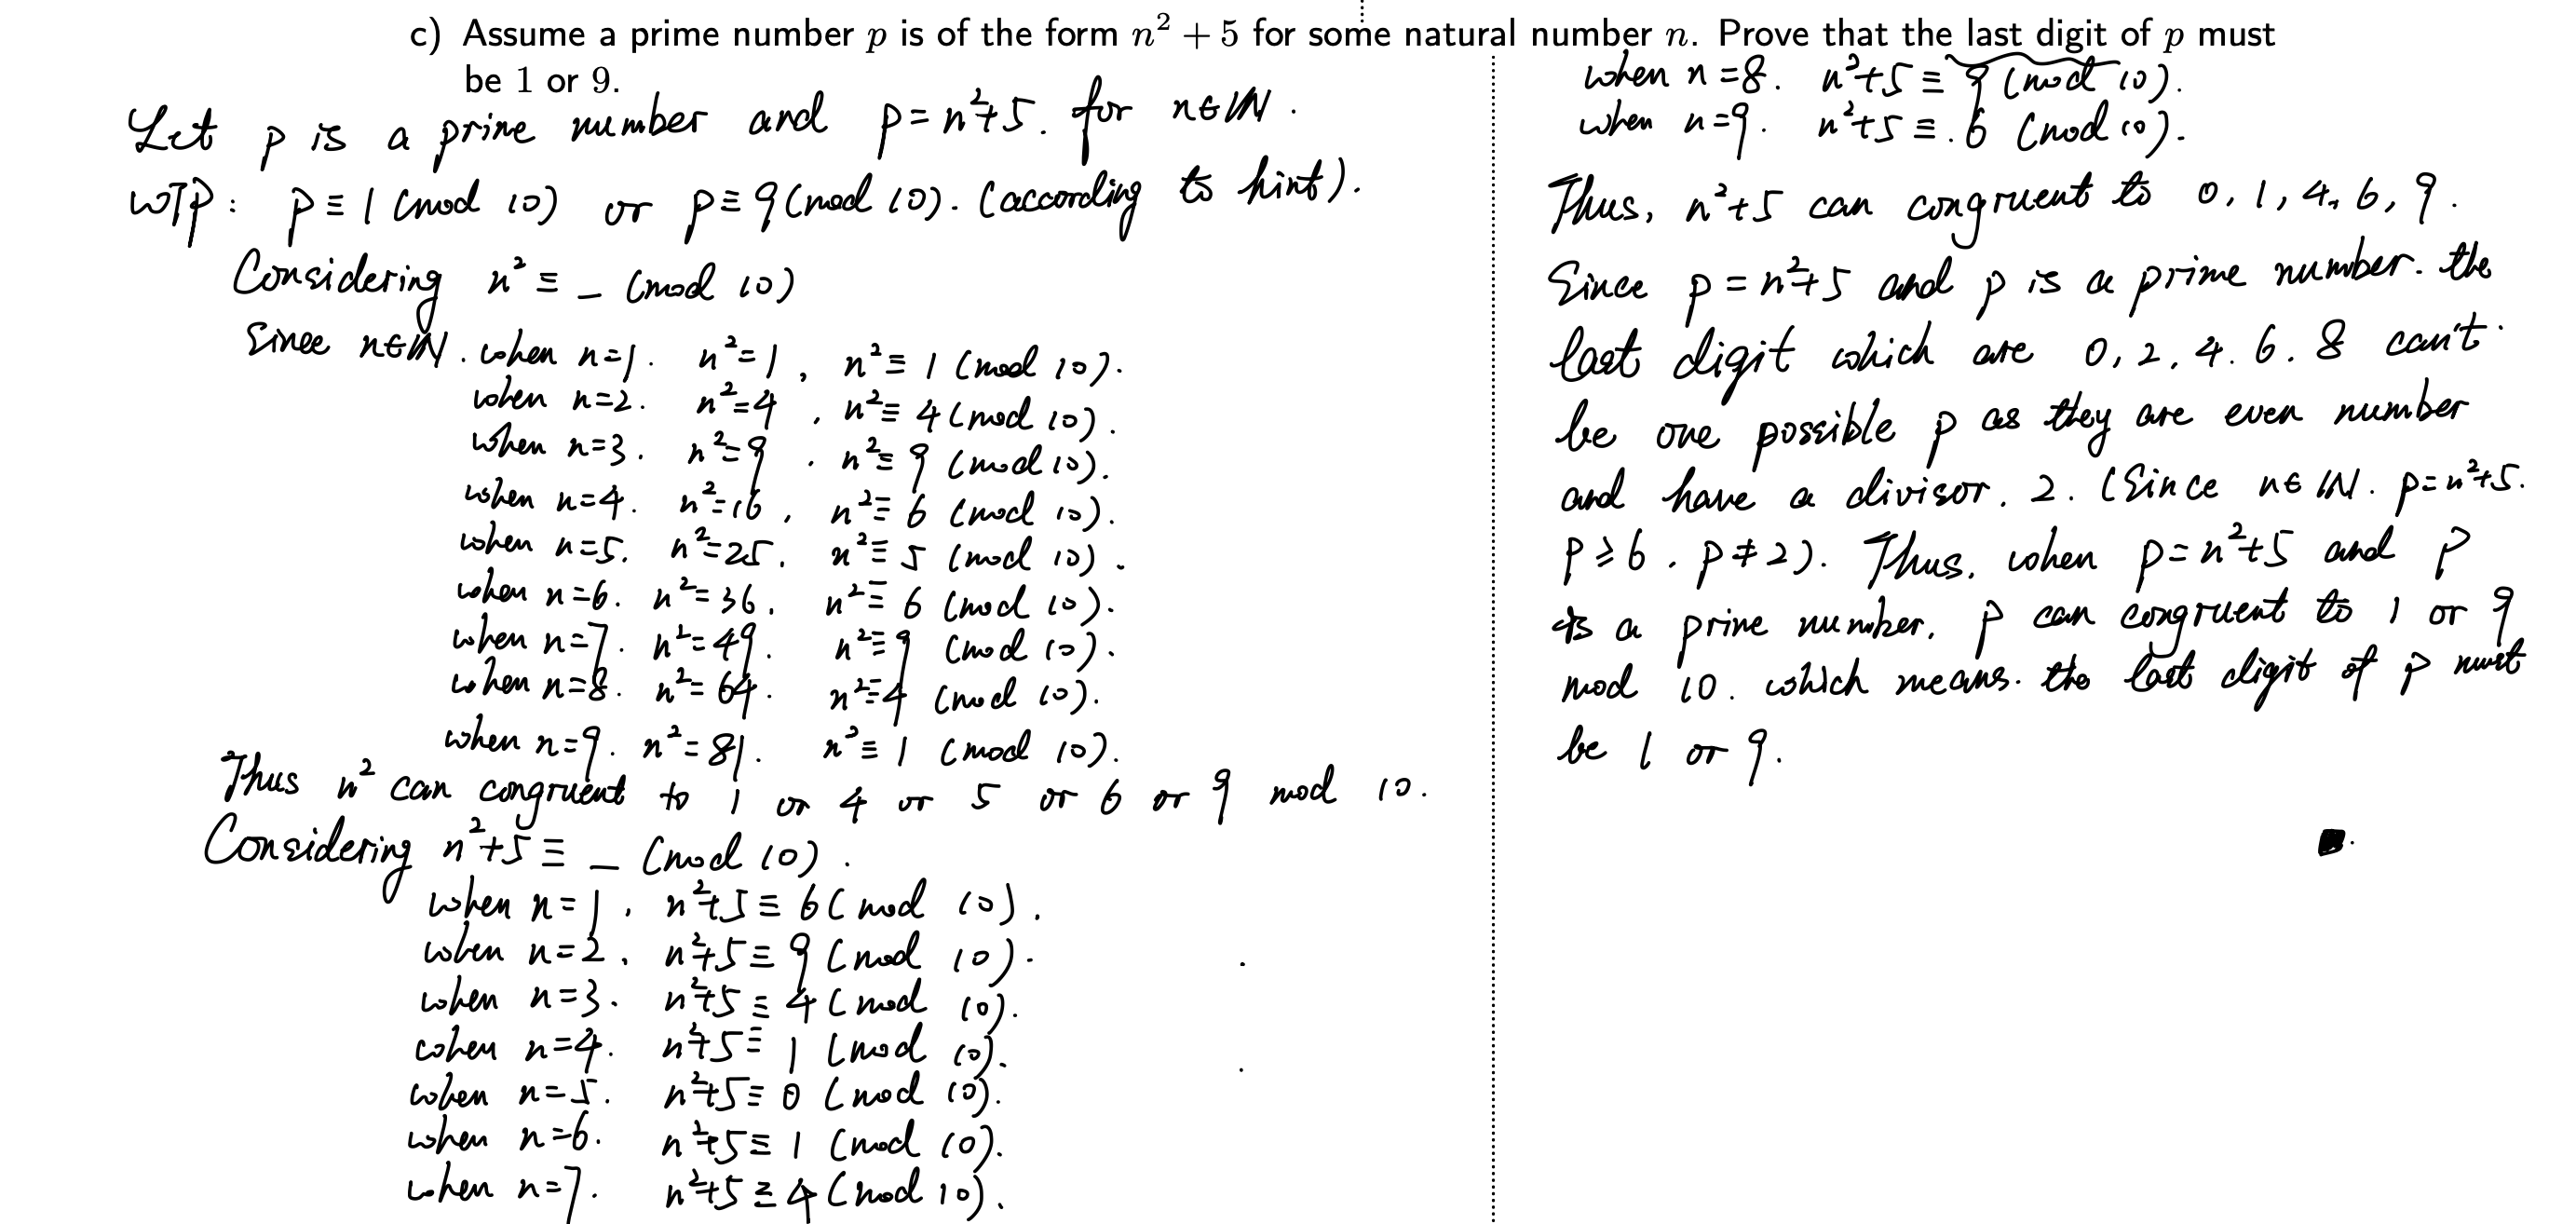 c) Assume a prime number p is of the form n² + 5 for some natural number n. Prove that the last digit of p must
be 1 or 9.
Let p is a prine number and p = n²+5. for n∈ℕ.
WTP: p ≡ 1 (mod 10) or p ≡ 9 (mod 10). (according to hint).
Considering n² ≡ _ (mod 10)
Since n∈ℕ. when n=1. n²=1, n² ≡ 1 (mod 10).
when n=2. n²=4, n² ≡ 4 (mod 10).
when n=3. n²=9. n² ≡ 9 (mod 10).
when n=4. n²=16, n² ≡ 6 (mod 10).
when n=5. n²=25. n² ≡ 5 (mod 10).
when n=6. n²=36. n² ≡ 6 (mod 10).
when n=7. n²=49. n² ≡ 9 (mod 10).
when n=8. n²=64. n² ≡ 4 (mod 10).
when n=9. n²=81. n² ≡ 1 (mod 10).
Thus n² can congruent to 1 or 4 or 5 or 6 or 9 mod 10.
Considering n²+5 ≡ _ (mod 10).
when n=1, n²+5 ≡ 6 (mod 10).
when n=2, n²+5 ≡ 9 (mod 10).
when n=3. n²+5 ≡ 4 (mod 10).
when n=4. n²+5 ≡ 1 (mod 10).
when n=5. n²+5 ≡ 0 (mod 10).
when n=6. n²+5 ≡ 1 (mod 10).
when n=7. n²+5 ≡ 4 (mod 10).
when n=8. n²+5 ≡ 9 (mod 10).
when n=9. n²+5 ≡. 6 (mod 10).
Thus, n²+5 can congruent to 0, 1, 4, 6, 9.
Since p = n²+5 and p is a prime number. the
last digit which are 0, 2, 4. 6. 8 can't
be one possible p as they are even number
and have a divisor. 2. (Since n∈ℕ. p=n²+5.
p ⩾ 6. p ≠ 2). Thus. when p = n²+5 and p
is a prine number. p can congruent to 1 or 9
mod 10. which means. the last digit of p must
be 1 or 9.